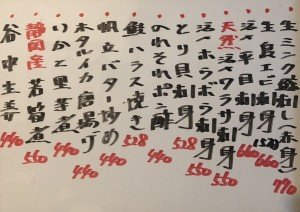 生ミンク刺し(赤身) 770
生島エビ刺身 660
活〆平目刺身 660
天然活〆ワラサ刺身 550
活ホウボウ刺身 550
とり貝刺身 528
のれそれポン酢 440
鮭ハラス焼き 528
帆立バター炒め 550
ホタルイカ唐揚げ 440
いかと里芋煮 440
静岡産若筍煮 550
谷中生姜 440